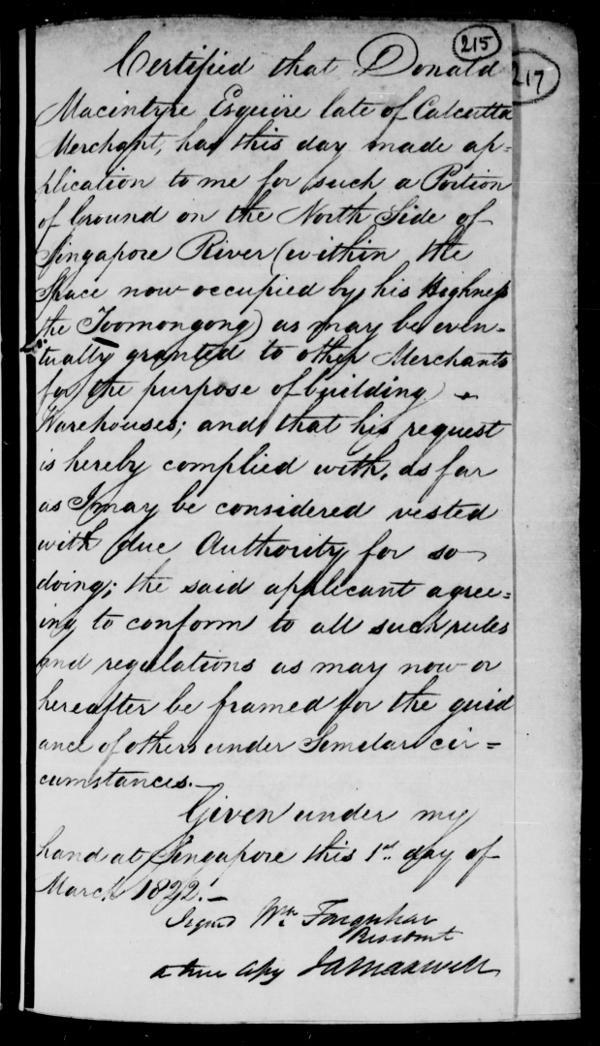 215
217
Certified that Donald
Macintyre Esquire late of Calcutta
Merchant, has this day made ap=
plication to me for such a Portion
of Ground on the North Side of
Singapore River (within the
Space now occupied by his Highness
the Toomongong) as may be even-
tually granted to other Merchants
for the purpose of building
Warehouses; and that his request
is hereby complied with, as far
as I may be considered vested
with due Authority for so
doing; the said applicant agree=
ing to conform to all such rules
and regulations as may now or
hereafter be framed for the guid
ance of others under Similar cir=
cumstances.—
Given under my
hand at Singapore this 1st day of
March 1822.—
Signed Wm Farquhar
Resident
A true Copy J A Maxwell